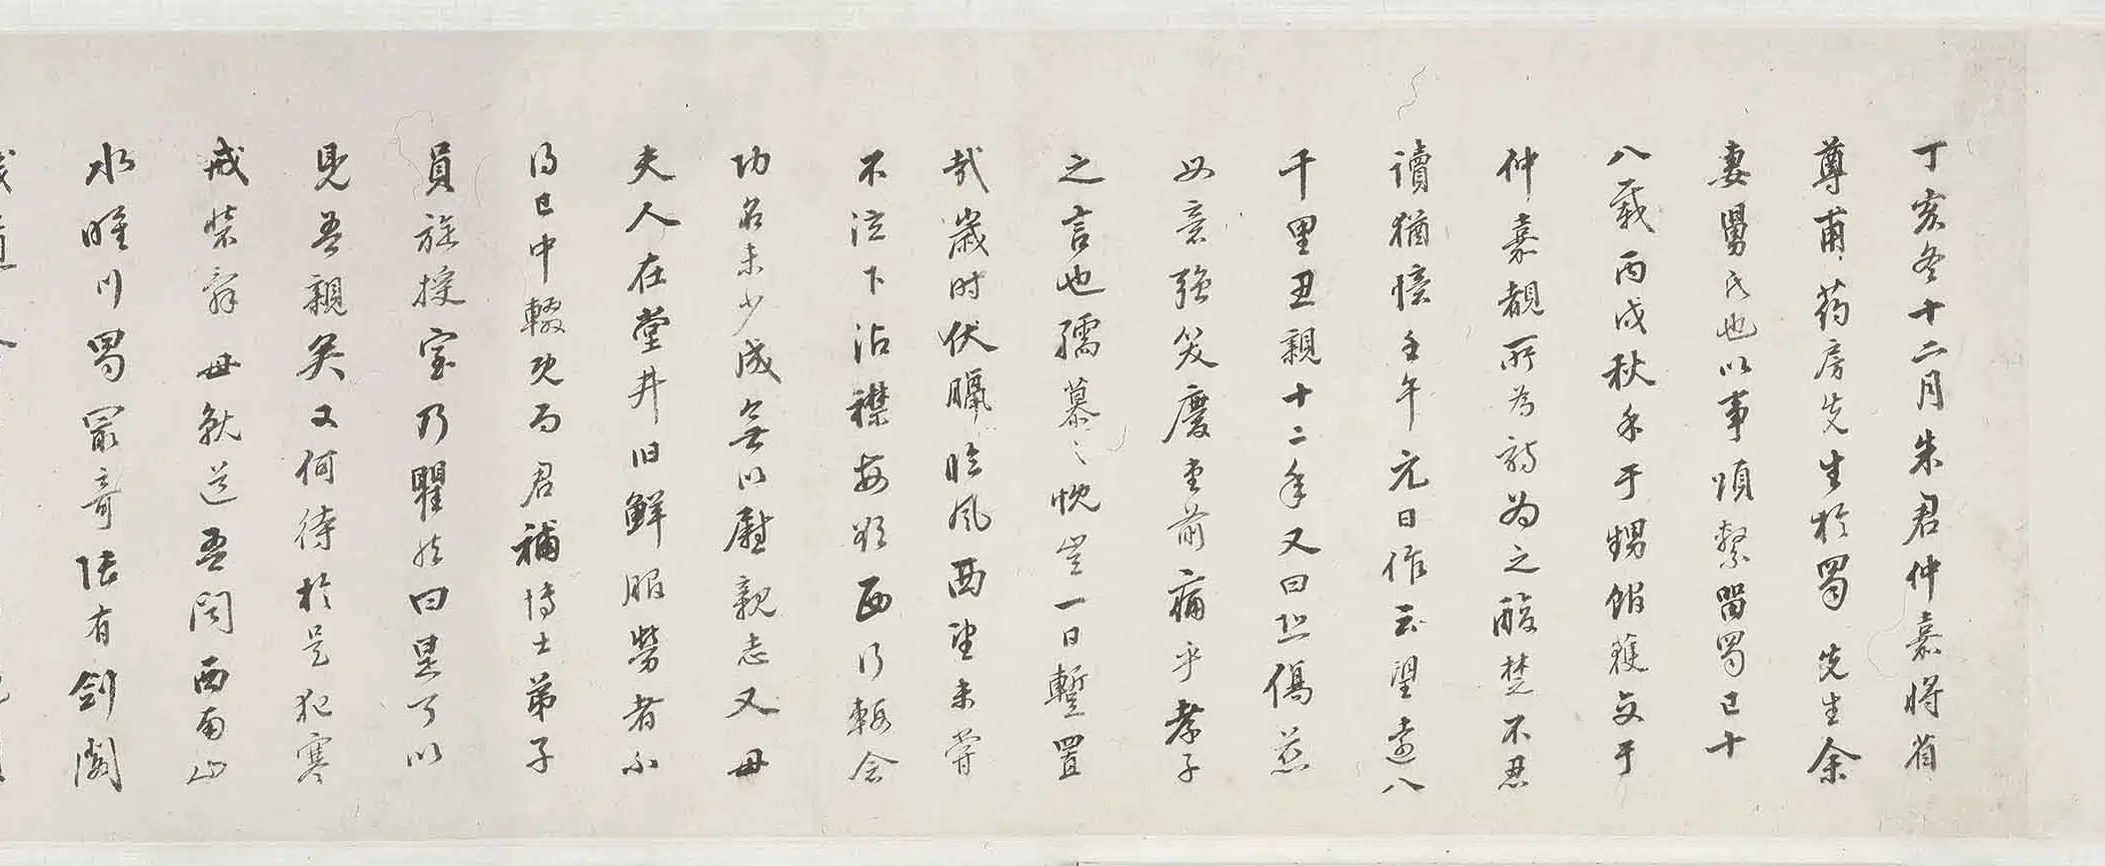 丁亥冬十二月朱君仲嘉將省
尊甫药房先生於蜀先生余
妻舅氏也以事煩繫留蜀已十
八載丙戌秋余于甥館獲交于
仲嘉覩所為詩為之酸楚不忍
讀猶憶壬午元日作云望遠八
千里丑親十二年又曰恐傷慈
母意強笑慶堂前痛乎孝子
之言也孺慕之忱豈一日蹔置
哉歲時伏臘臨風西望未嘗
不泣下沾襟每欲西行輒念
功名未少成無以慰親志又母
夫人在堂井臼鮮服勞者不
得已中輟既而君補博士弟子
員旋授室乃瞿然曰是可以
見吾親矣又何待於是犯寒
戒裝辭母就道吾聞西南山
水唯川蜀最奇陆有劍閣